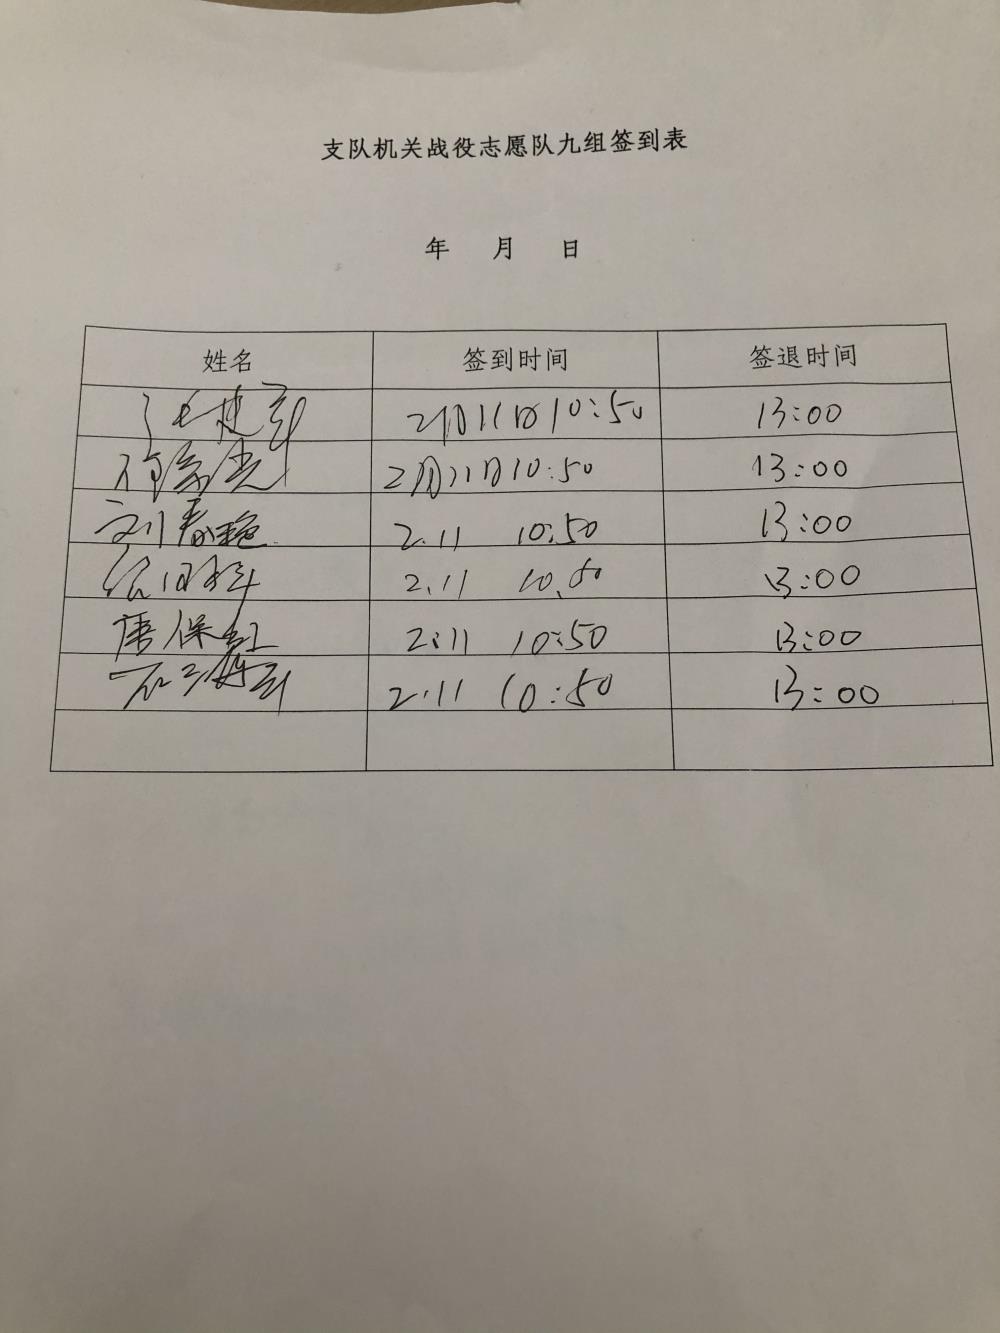 支队机关战役志愿队九组签到表
年 月 日
姓名 签到时间 签退时间
2月11日10:50 13:00
2月11日10:50 13:00
刘春艳 2.11 10:50 13:00
2.11 10.50 13:00
唐保红 2:11 10:50 13:00
2.11 10:50 13:00